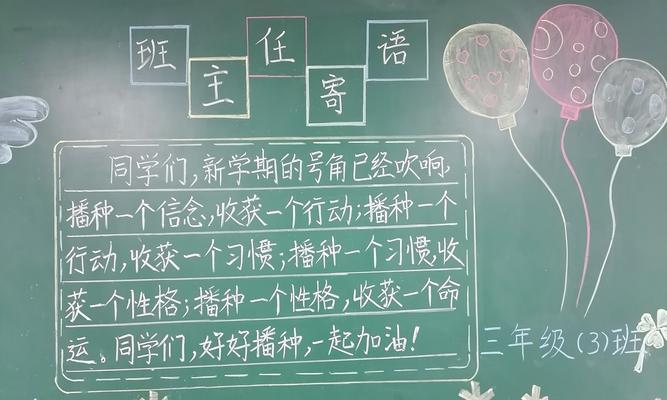 班主任寄语
同学们,新学期的号角已经吹响,
播种一个信念,收获一个行动;播种一个
行动,收获一个习惯;播种一个习惯,收
获一个性格;播种一个性格,收获一个命
运。同学们,好好播种,一起加油!
三年级(3)班